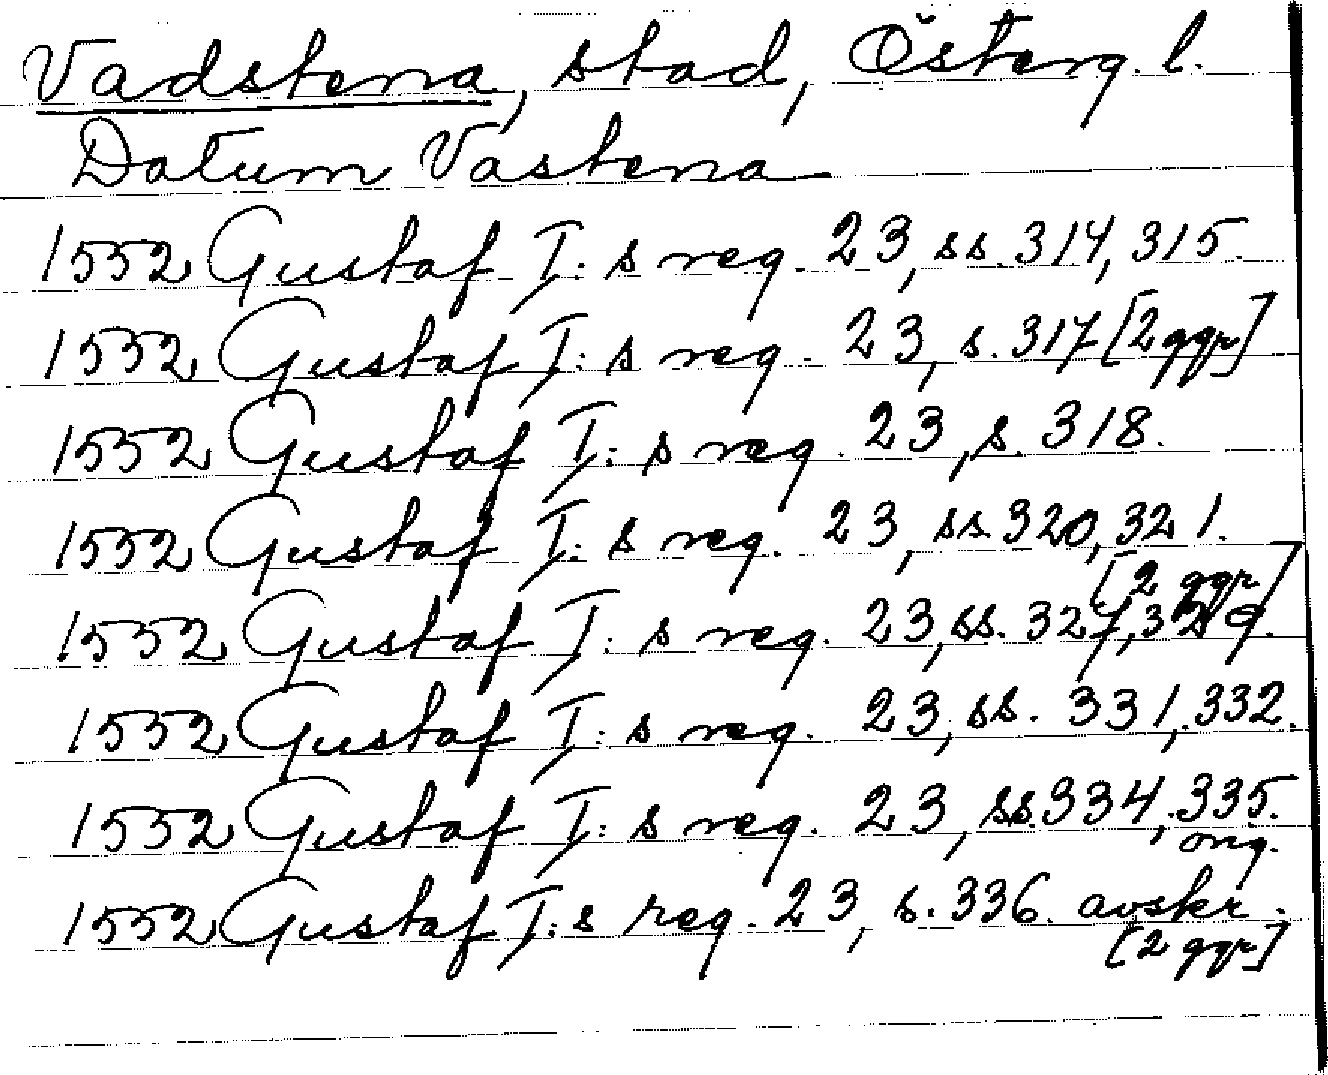 Vadstena, stad, Österg. l.
Datum Vastena
1552 Gustaf I:s reg. 23, ss. 314, 315.
1552 Gustaf I:s reg. 23, s. 317 [2 ggr]
1552 Gustaf I:s reg. 23, s. 318.
1552 Gustaf I:s reg. 23, ss. 320, 321.
[2 ggr]
1552 Gustaf I:s reg. 23, ss. 327, 329.
1552 Gustaf I:s reg. 23, ss. 331, 332.
1552 Gustaf I:s reg. 23, ss. 334, 335.
orig.
1552 Gustaf I:s reg. 23, s. 336. avskr.
[2 ggr]